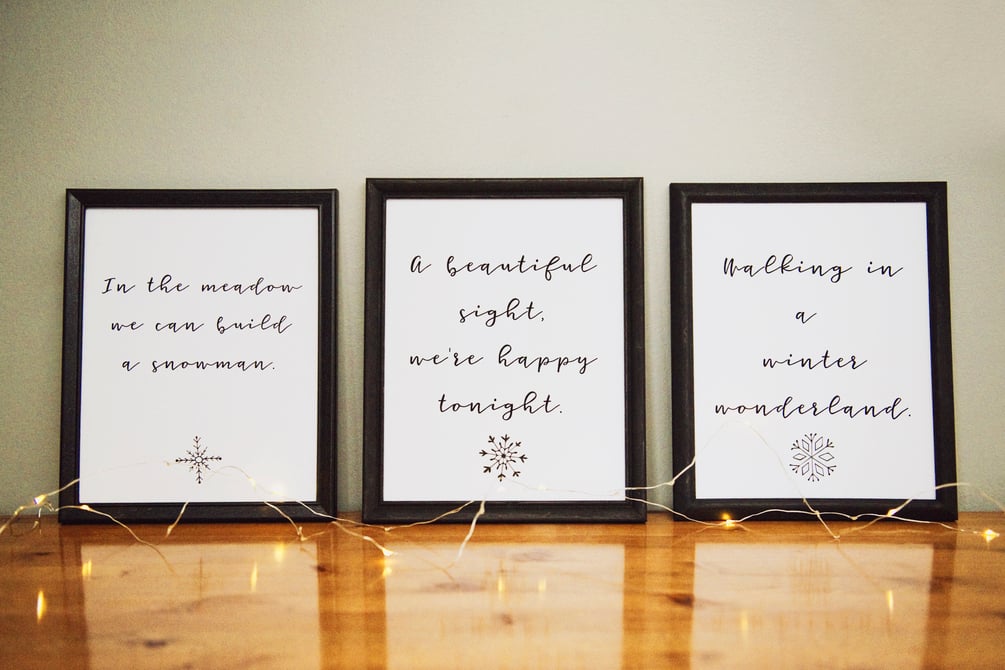 In the meadow
we can build
a snowman.
A beautiful
sight,
we're happy
tonight.
Walking in
a
winter
wonderland.